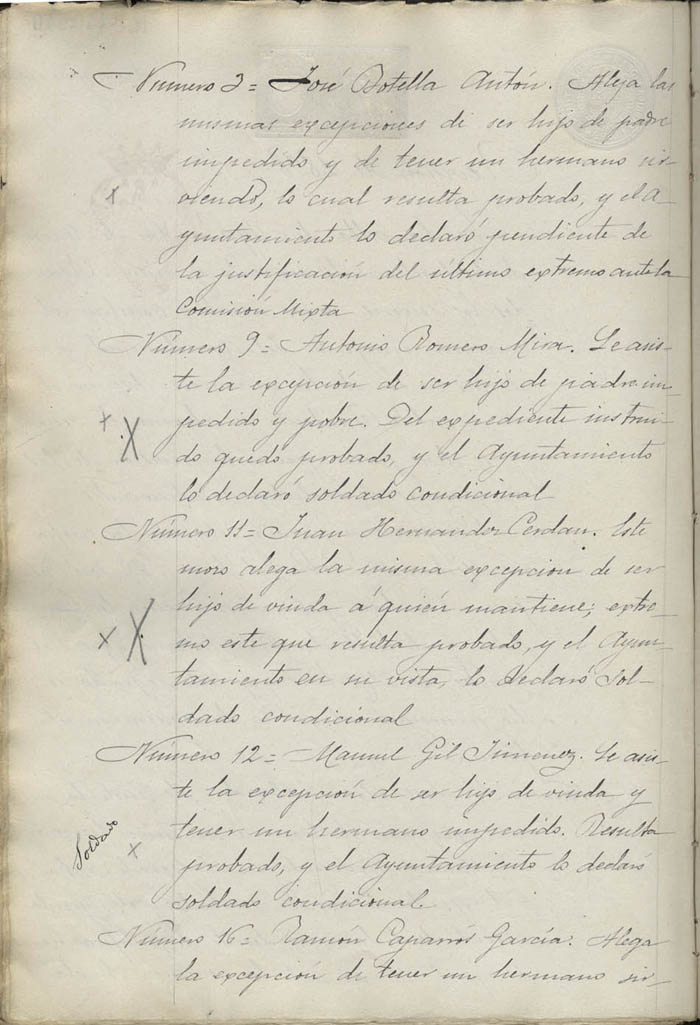 Número 3= José Botella Antón. Alega las
mismas excepciones de ser hijo de padre
impedido y de tener un hermano sir-
viendo, lo cual resulta probado, y el A-
yuntamiento lo declaró pendiente de
la justificación del último extremo ante la
Comisión Mixta
Número 9= Antonio Romero Mira. Le asis-
te la excepción de ser hijo de padre im-
pedido y pobre. Del expediente instrui-
do quedó probado, y el Ayuntamiento
lo declaró soldado condicional
Número 11= Juan Hernandez Cerdan. Este
mozo alega la misma excepcion de ser
hijo de viuda á quién mantiene; extre-
mo este que resulta probado, y el Ayun-
tamiento en su vista, lo declaró sol-
dado condicional
Número 12= Manuel Gil Jimenez. Le asis-
te la excepción de ser hijo de viuda y
tener un hermano impedido. Resulta
Soldado
probado, y el Ayuntamiento lo declaró
soldado condicional.
Número 16= Ramón Caparrós García. Alega
la excepción de tener un hermano sir-